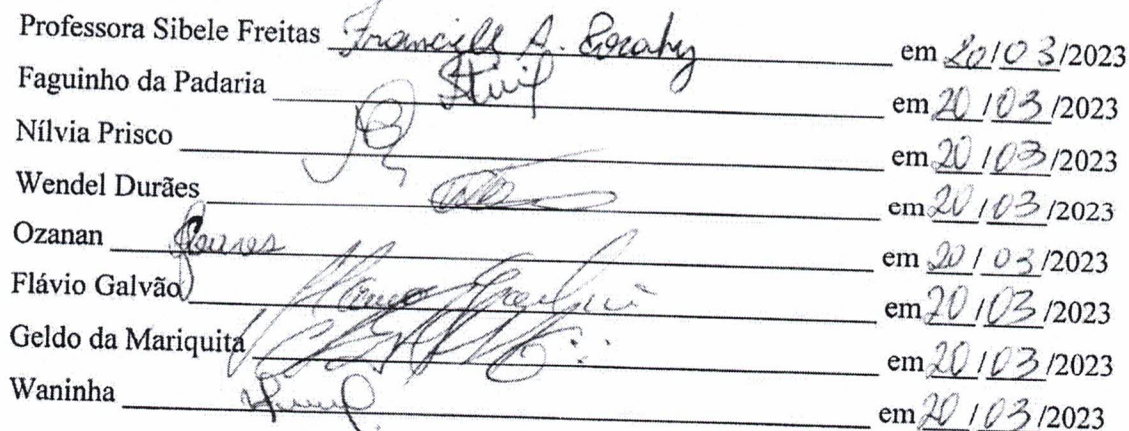 Professora Sibele Freitas Francielle A. em 20/03/2023
Faguinho da Padaria em 20/03/2023
Nílvia Prisco em 20/03/2023
Wendel Durães em 20/03/2023
Ozanan em 20/03/2023
Flávio Galvão em 20/03/2023
Geldo da Mariquita em 20/03/2023
Waninha em 20/03/2023